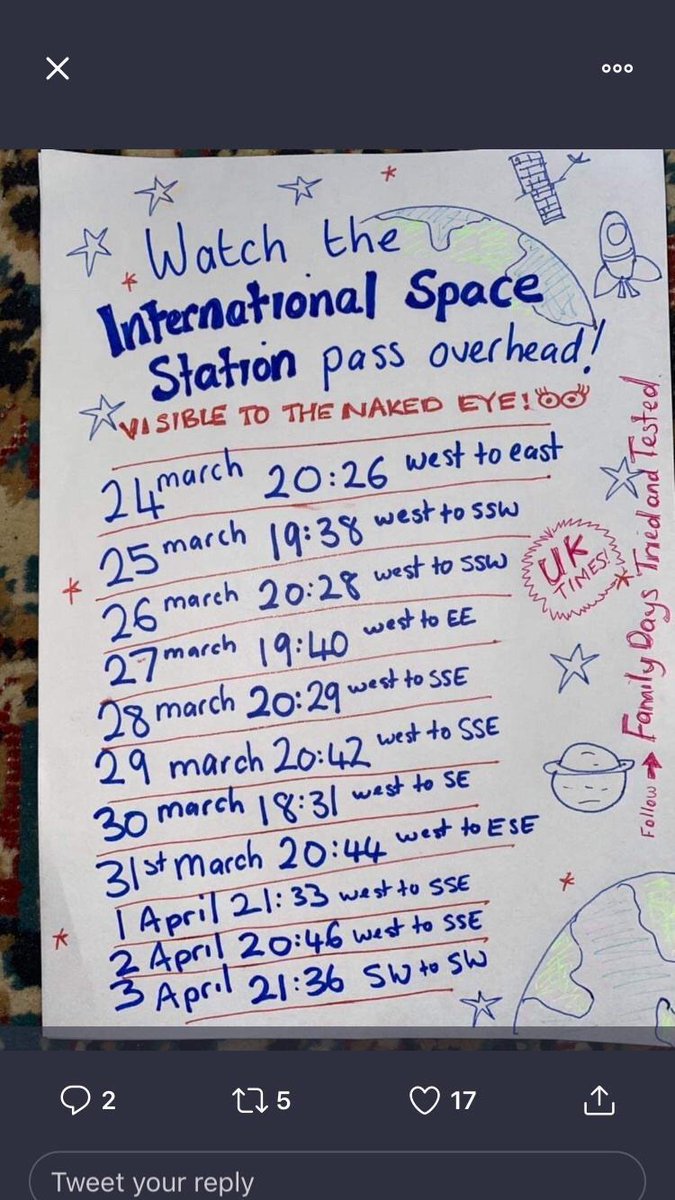 Watch the
International Space
Station pass overhead!
VISIBLE TO THE NAKED EYE!
24 march 20:26 west to east
25 march 19:38 west to SSW
26 march 20:28 west to SSW
27 march 19:40 west to EE
28 march 20:29 west to SSE
29 march 20:42 west to SSE
30 march 18:31 west to SE
31st March 20:44 west to ESE
1 April 21:33 west to SSE
2 April 20:46 west to SSE
3 April 21:36 SW to SW
UK
TIMES!
Follow → Family Days Tried and Tested.
2 5 17
Tweet your reply